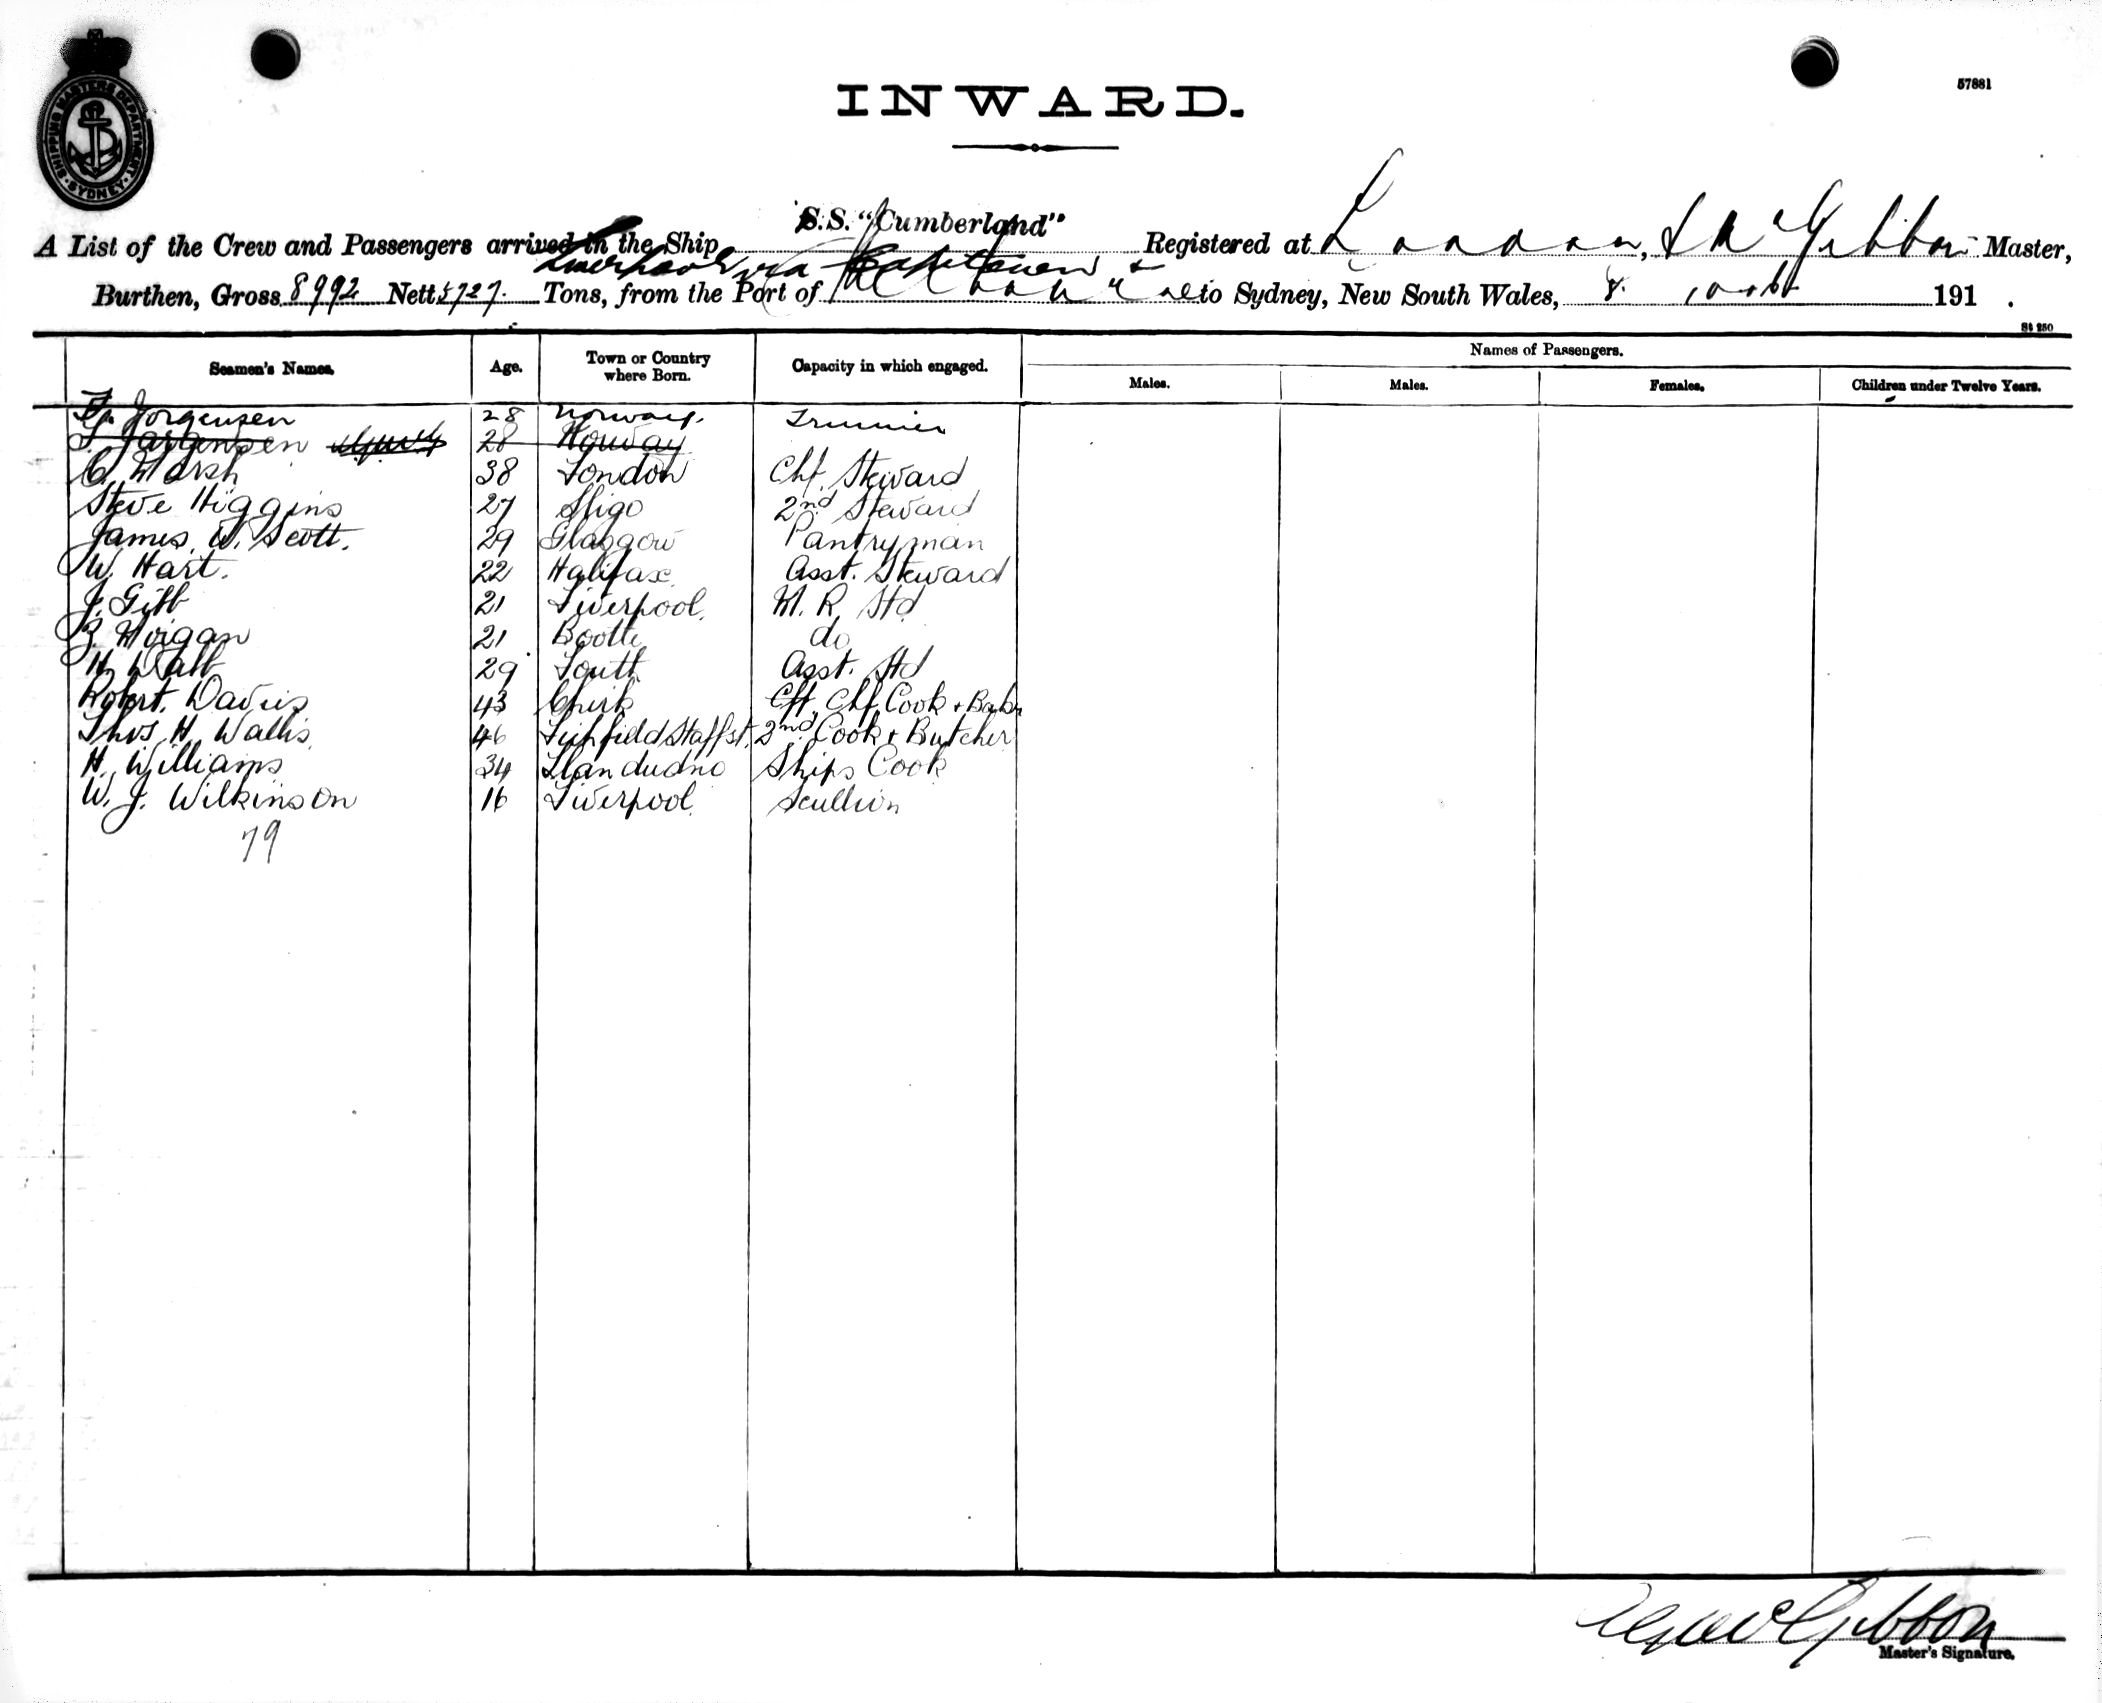 SHIPPING MASTERS DEPARTMENT · SYDNEY ·
INWARD.
57881
A List of the Crew and Passengers arrived in the Ship S.S. "Cumberland" Registered at London, McGibbon Master,
Liverpool via
Burthen, Gross 8992 Nett 5727. Tons, from the Port of to Sydney, New South Wales, 8. 191 .
St 250
Seamen's Names. Age. Town or Country where Born. Capacity in which engaged. Names of Passengers.
Males. Males. Females. Children under Twelve Years.
Jorgensen 28 Norway. Trimmer
Jorgensen 28 Norway
C. Marsh 38 London Chf. Steward
Steve Higgins 27 Sligo 2nd Steward
James W. Scott. 29 Glasgow Pantryman
W. Hart. 22 Halifax Asst. Steward
J. Gibb 21 Liverpool. M. R. Std
Morgan 21 Bootle do
29 Asst. Std
Robert. Davies 43 Chirk Chf. Cook + Baker
Thos. H. Wallis 46 Lichfield Staffst. 2nd Cook + Butcher
H. Williams 34 Llandudno Ships Cook
W. J. Wilkinson 16 Liverpool. Scullion
79
McGibbon
Master's Signature.